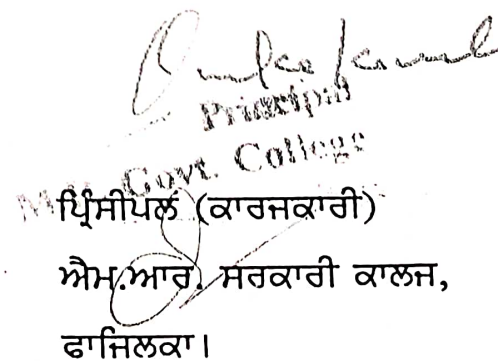 Principal
Govt. College
ਪ੍ਰਿੰਸੀਪਲ (ਕਾਰਜਕਾਰੀ)
ਐਮ.ਆਰ. ਸਰਕਾਰੀ ਕਾਲਜ,
ਫਾਜਿਲਕਾ।